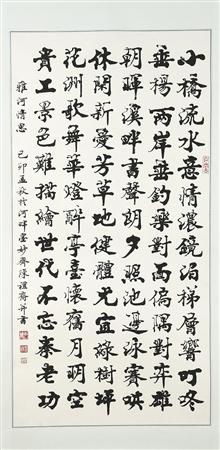 小橋流水意情濃鏡湖梯層響叮咚
垂楊兩岸垂釣樂對對偏隅對弈雄
朝暉溪畔書聲朗夕照池邊泳
休閑新愛芳草地健體宜緣樹坪
花洲歌舞華燈醉亭臺懷舊月明空
貴工景色難描繪世代不忘秦老功
雅河情思 己卯孟秋於河畔墨妙齋陳誼齋并書